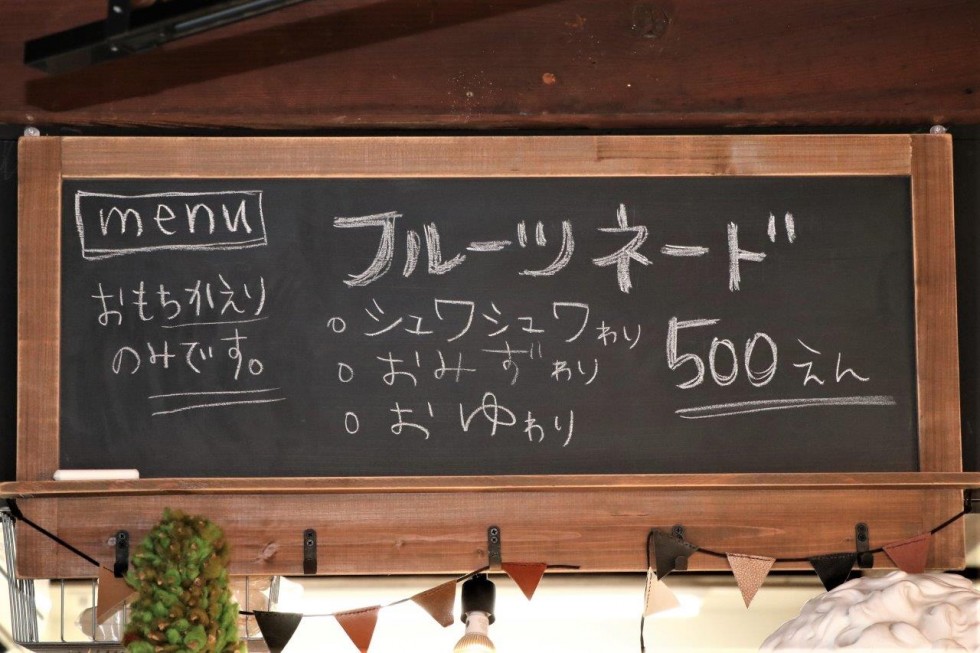 menu
おもちかえり
のみです。
フルーツネード
○ シュワシュワわり
○ おみずわり
○ おゆわり
500えん